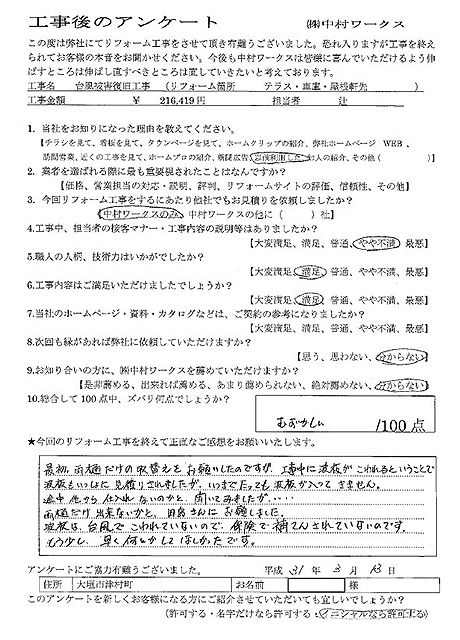 工事後のアンケート　㈱中村ワークス
この度は弊社にてリフォーム工事をさせて頂き有難うございました。恐れ入りますが工事を終え
られてお客様の本音をお聞かせください。今後も中村ワークスは皆様に喜んでいただけるよう伸
ばすところは伸ばし直すべきところは直していきたいと考えております。
工事名　台風被害復旧工事　（リフォーム箇所　テラス・車庫・屋根軒先　）
工事金額　￥　216,419円　担当者　辻
1. 当社をお知りになった理由を教えてください。
【チラシを見て、看板を見て、タウンページを見て、ホームクリップの紹介、弊社ホームページ　WEB、
訪問営業、近くの工事を見て、ホームプロの紹介、新聞広告、以前利用した、知人の紹介、その他（　）】
2. 業者を選ばれる際に最も重要視されたことはなんですか？
【価格、営業担当の対応・説明、評判、リフォームサイトの評価、信頼性、その他】
3. 今回リフォーム工事をするにあたり他社でもお見積りを依頼しましたか？
【中村ワークスのみ、中村ワークスの他に（　）社】
4.工事中、担当者の接客マナー・工事内容の説明等はありましたか？
【大変満足、満足、普通、やや不満、最悪】
5.職人の人柄、技術力はいかがでしたか？
【大変満足、満足、普通、やや不満、最悪】
6.工事内容はご満足いただけましたでしょうか？
【大変満足、満足、普通、やや不満、最悪】
7.当社のホームページ・資料・カタログなどは、ご契約の参考になりましたか？
【大変満足、満足、普通、やや不満、最悪】
8.次回も縁があれば弊社に依頼していただけますか？
【思う、思わない、分からない】
9.お知り合いの方に、㈱中村ワークスを薦めていただけますか？
【是非薦める、出来れば薦める、あまり薦められない、絶対薦めない、分からない】
10.総合して100点中、ズバリ何点でしょうか？
むずかしい　/100点
★今回のリフォーム工事を終えて正直なご感想をお願いいたします。
最初、雨樋だけの取替えをお願いしたのですが、工事中に波板がこわれるということで
波板もいっしょに見積りされましたが、いつまでたっても波板が入ってきません。
途中他から仕入れないのかと、聞いてみましたが、・・・・
雨樋だけ出来ないかと、
波板は、台風でこわれていないので、保険で補てんされていないのです。
もう少し、早く何とかしてほしかったです。
アンケートにご協力有難うございました。　平成 31 年 3 月 13 日
住所　大垣市津村町　お名前　様
このアンケートを新しくお客様になる方にご紹介させていただいても宜しいでしょうか？
（許可する・名字だけなら許可する・イニシャルなら許可する）